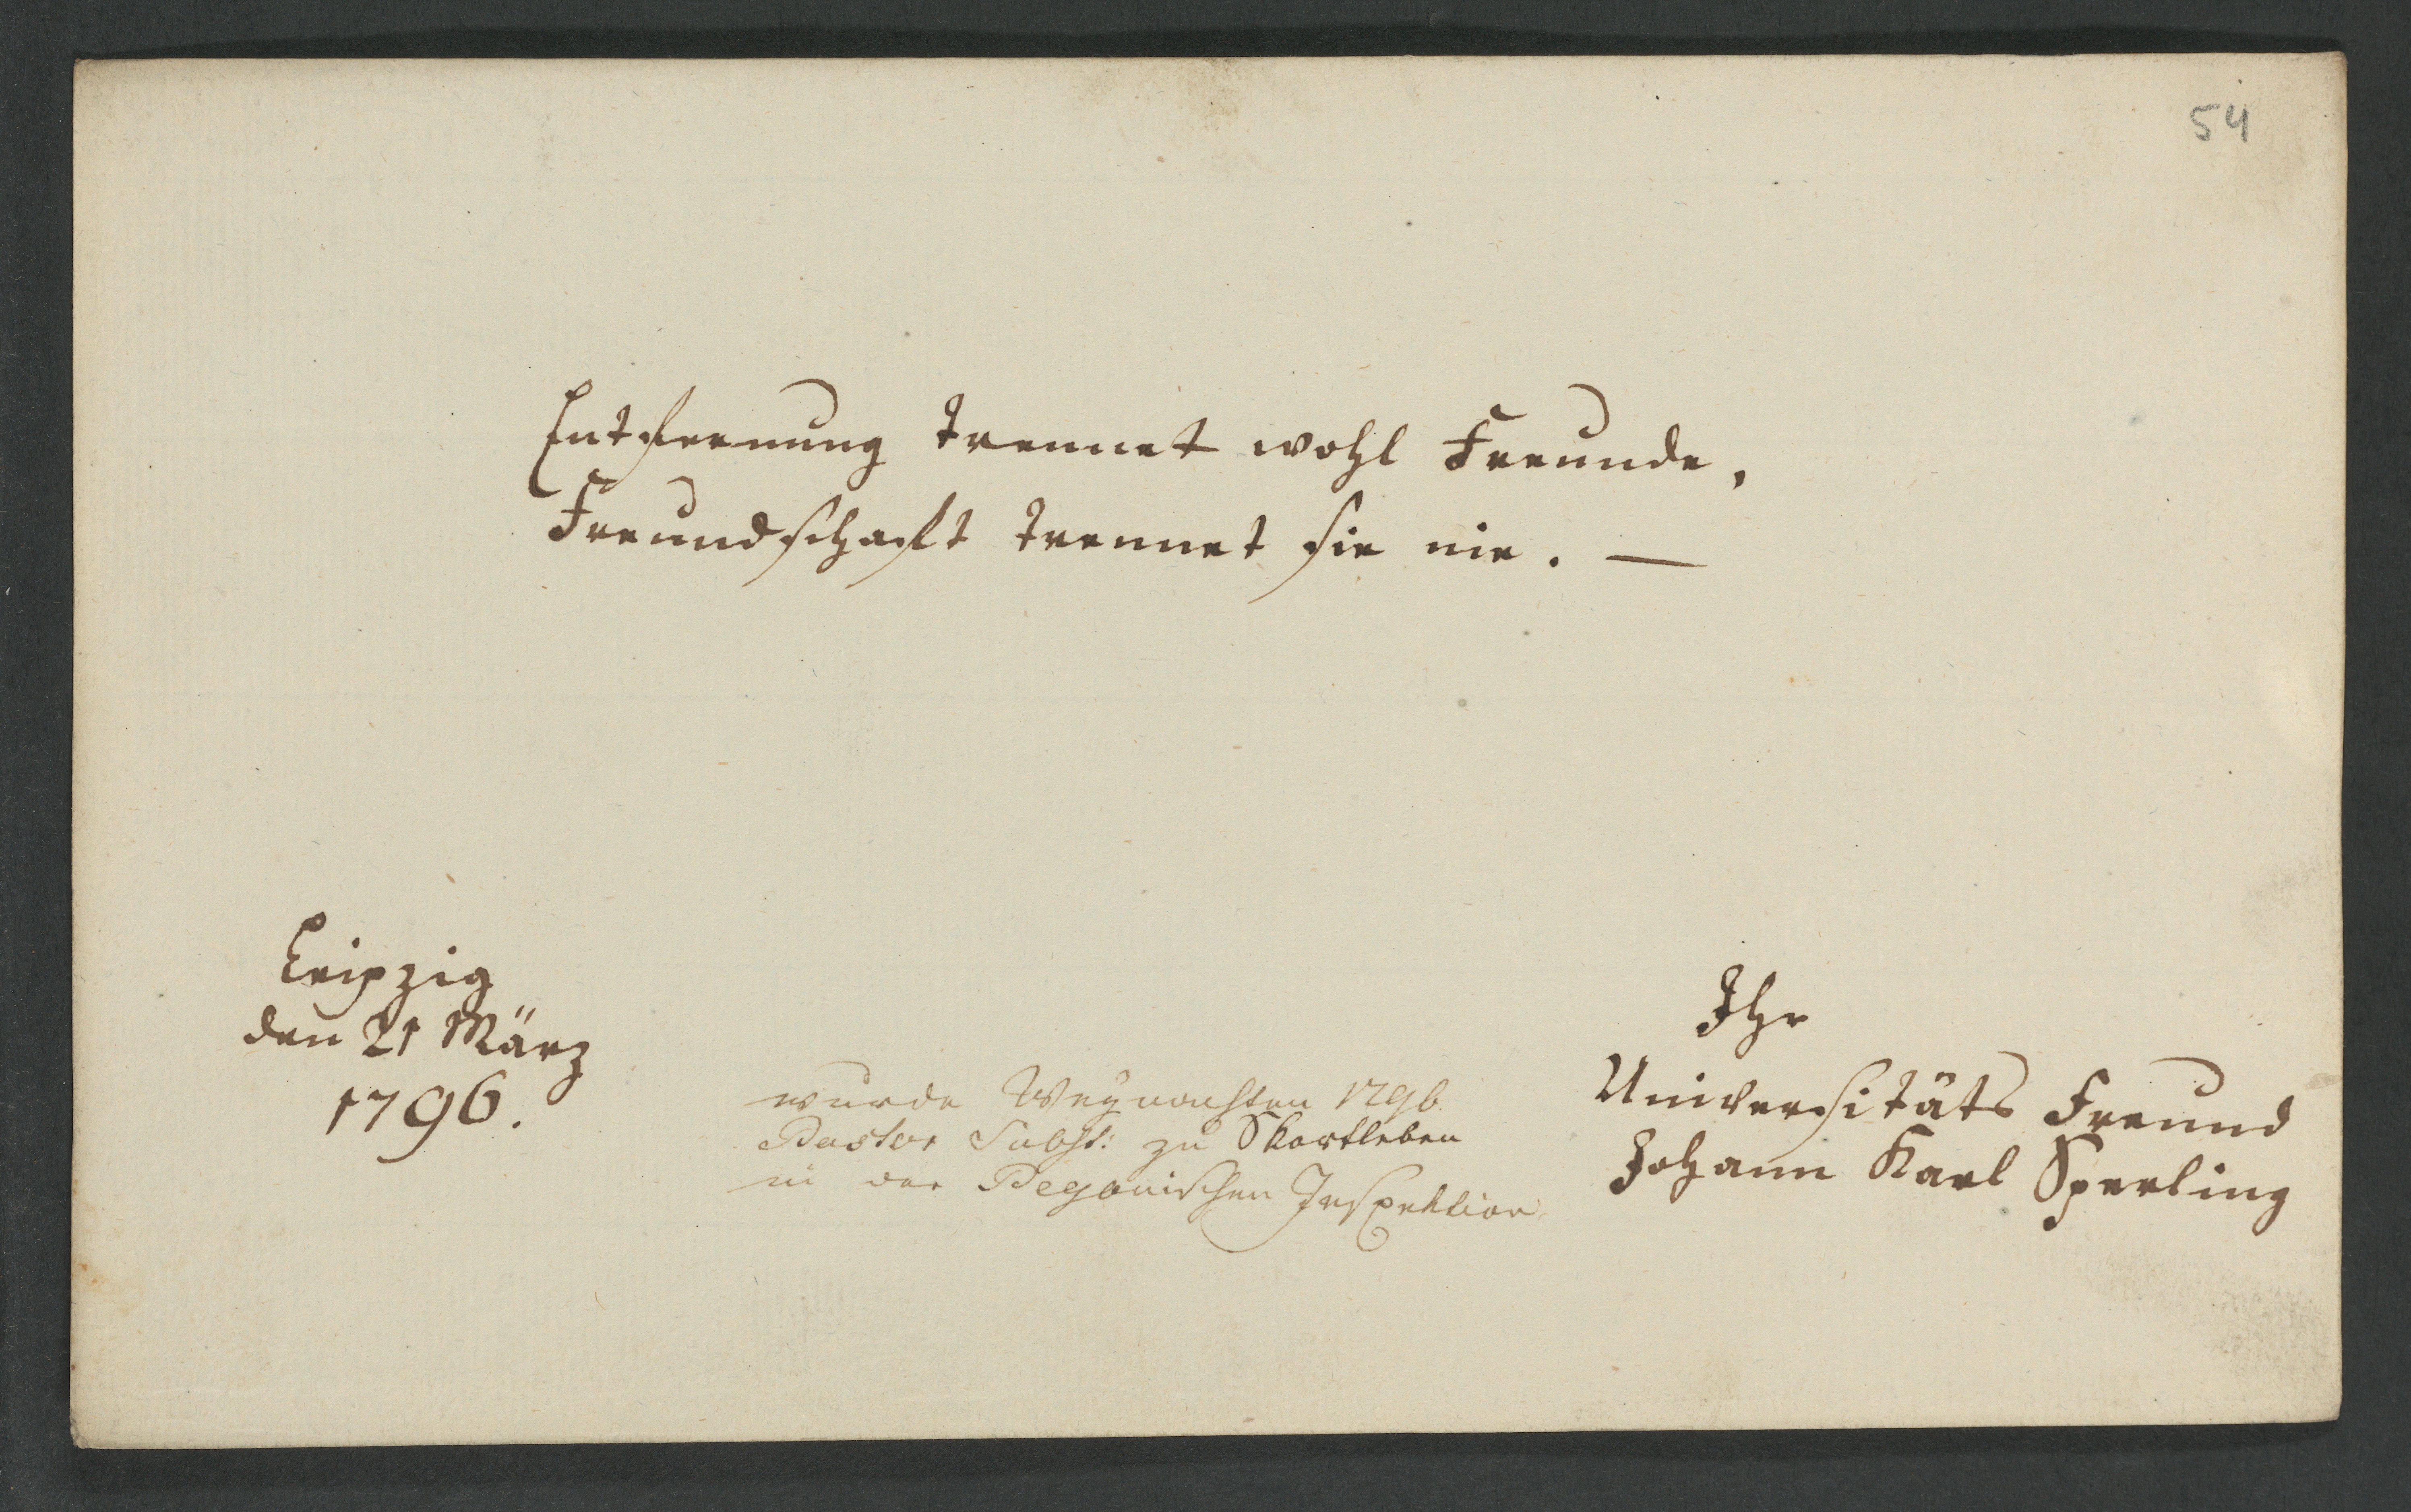 54
Entfernung trennet wohl Freunde,
Freundschaft trennet sie nie. —
Leipzig
den 21 März
1796.
wurde Weynachten 1796
Pastor Subst: zu Skortleben
in der Pegauischen Inspektion
Ihr
Universitäts Freund
Johann Karl Sperling